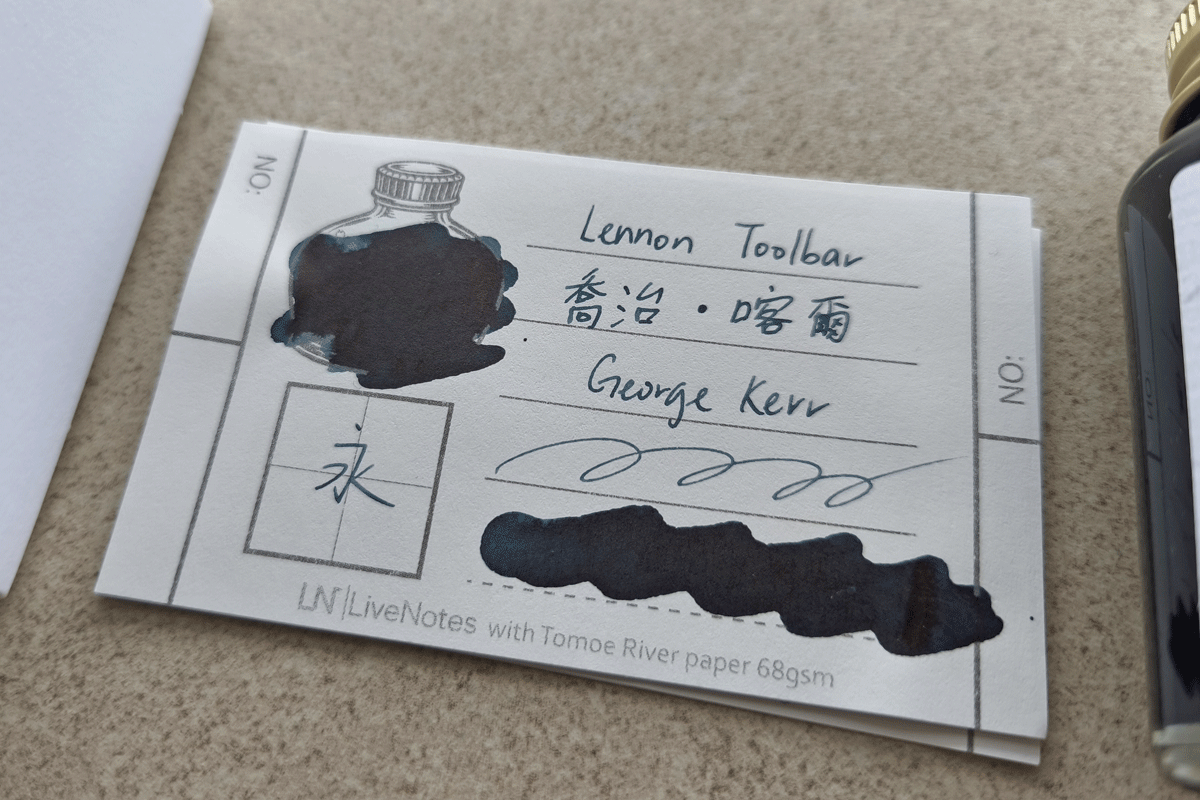 NO:
Lennon Toolbar
喬治·喀爾
George Kerr
NO:
永
LN|LiveNotes with Tomoe River paper 68gsm